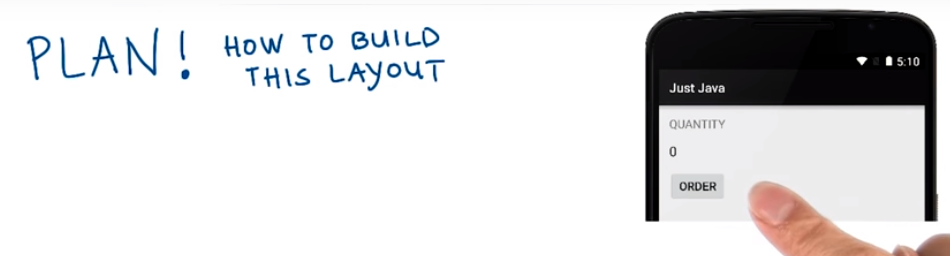 PLAN! HOW TO BUILD
THIS LAYOUT
5:10
Just Java
QUANTITY
0
ORDER